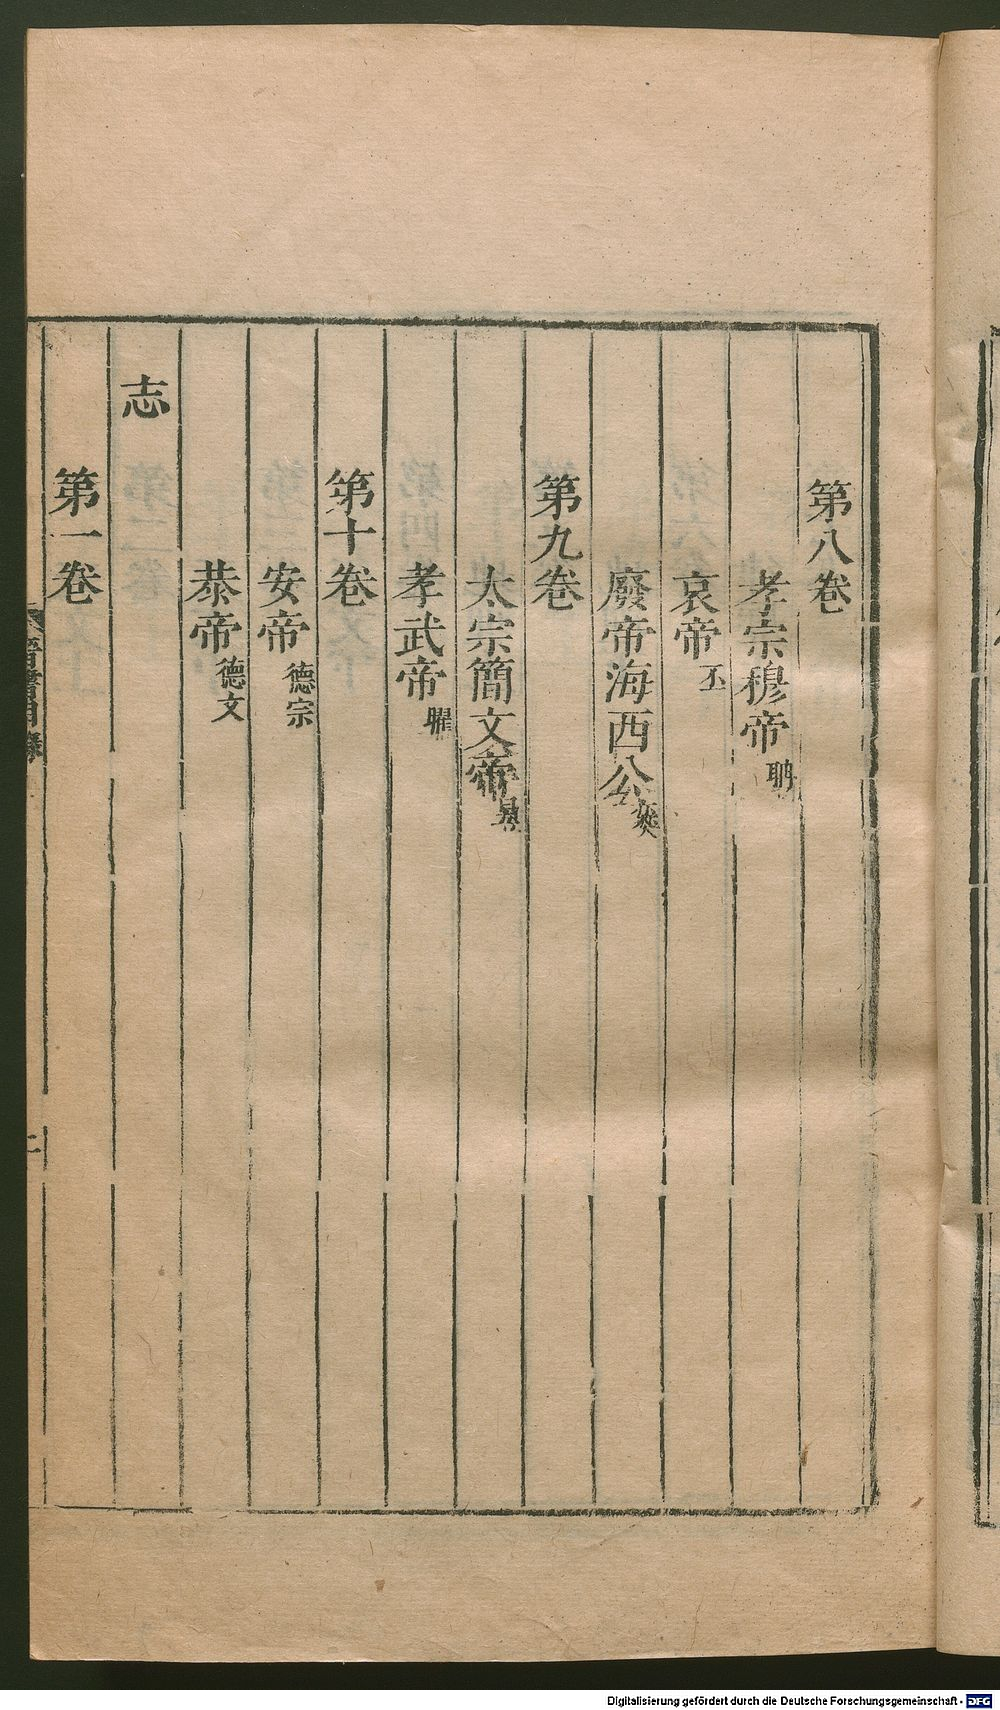 第八卷
孝宗穆帝聃
哀帝丕
廢帝海西公奕
第九卷
太宗簡文帝昱
孝武帝曜
第十卷
安帝德宗
恭帝德文
志
第一卷
晉書目錄
二
Digitalisierung gefördert durch die Deutsche Forschungsgemeinschaft - DFG